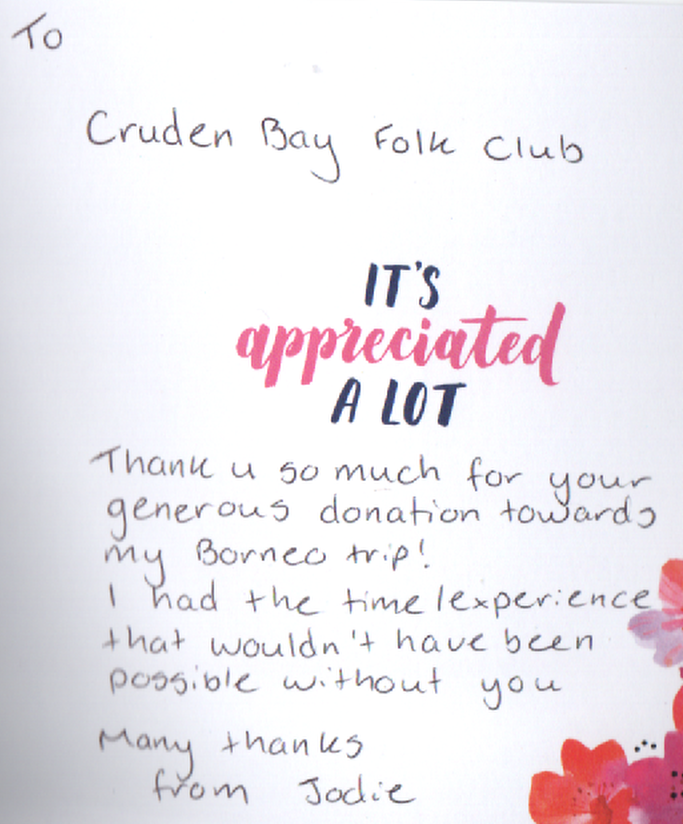 To
Cruden Bay Folk Club
IT'S
appreciated
A LOT
Thank u so much for your
generous donation towards
my Borneo trip!
I had the time/experience
that wouldn't have been
possible without you
Many thanks
from Jodie